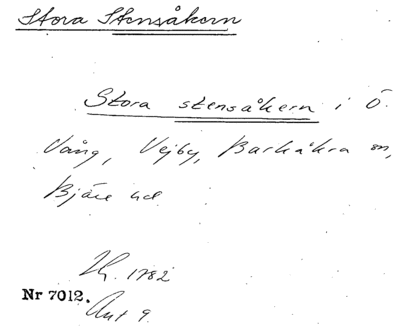 Stora Stensåkern
Stora stensåkern i Ö.
Vång, Vejby, Barkåkra sn,
Bjäre hd.
1782
Nr 7012.
Akt 9.